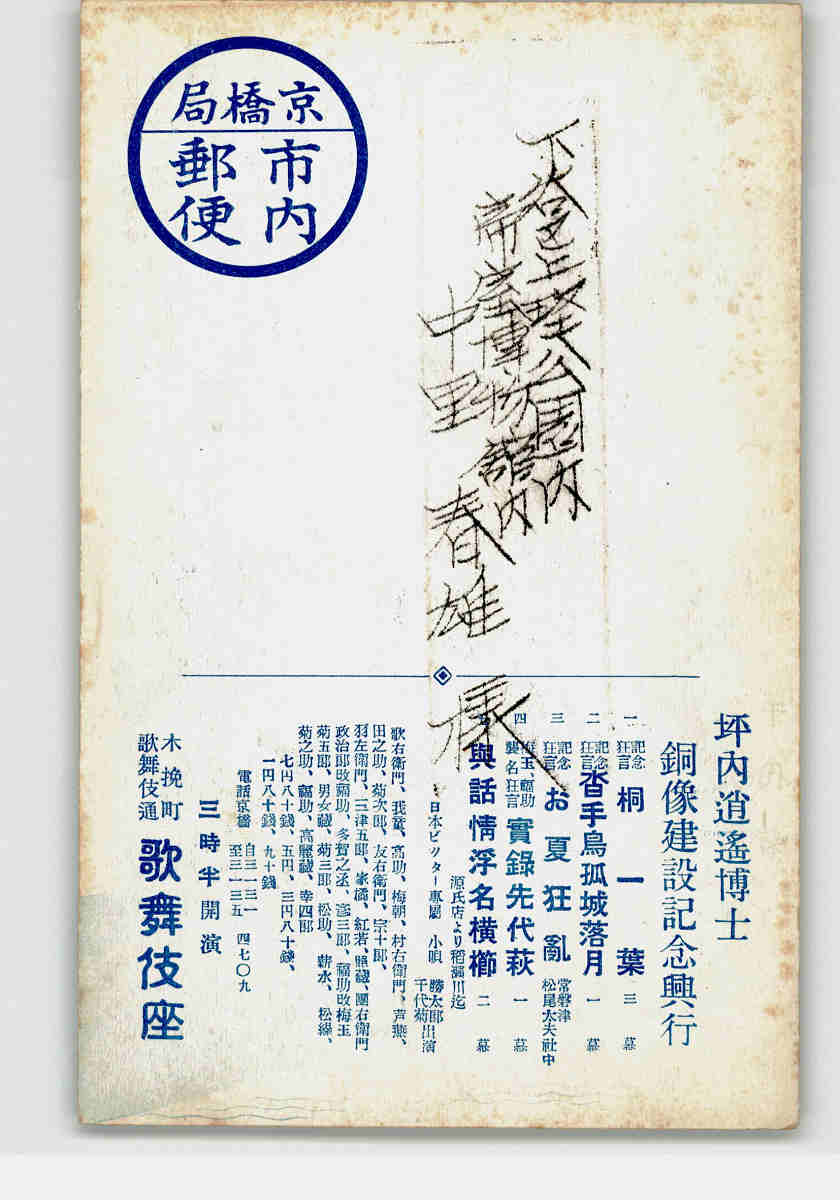 京橋局
市内
郵便
下谷区上野公園内
帝室博物館内
中野春雄様
坪內逍遙博士
銅像建設記念興行
一 記念狂言 桐一葉 三幕
二 記念狂言 沓手鳥孤城落月 一幕
三 記念狂言 お夏狂亂 常磐津 松尾太夫社中
四 梅玉 福助 襲名狂言 實錄先代萩 一幕
與話情浮名横櫛 二幕
源氏店より稻瀨川迄
日本ビクター專屬 小唄 勝太郎 千代菊 出演
歌右衛門、我童、高助、梅朝、村右衛門、芦燕、
田之助、菊次郎、友右衛門、宗十郎、
羽左衛門、三津五郎、家橘、紅若、照藏、團右衛門
政治郎改福助、多賀之丞、福助改梅玉
菊五郎、男女藏、菊三郎、松助、薪水、松綠、
菊之助、福助、高麗藏、幸四郎
七円八十錢、五円、三円八十錢、
一円八十錢、九十錢
電話京橋 自三一三一 至三一三五 四七〇九
三時半開演
木挽町
歌舞伎通
歌舞伎座